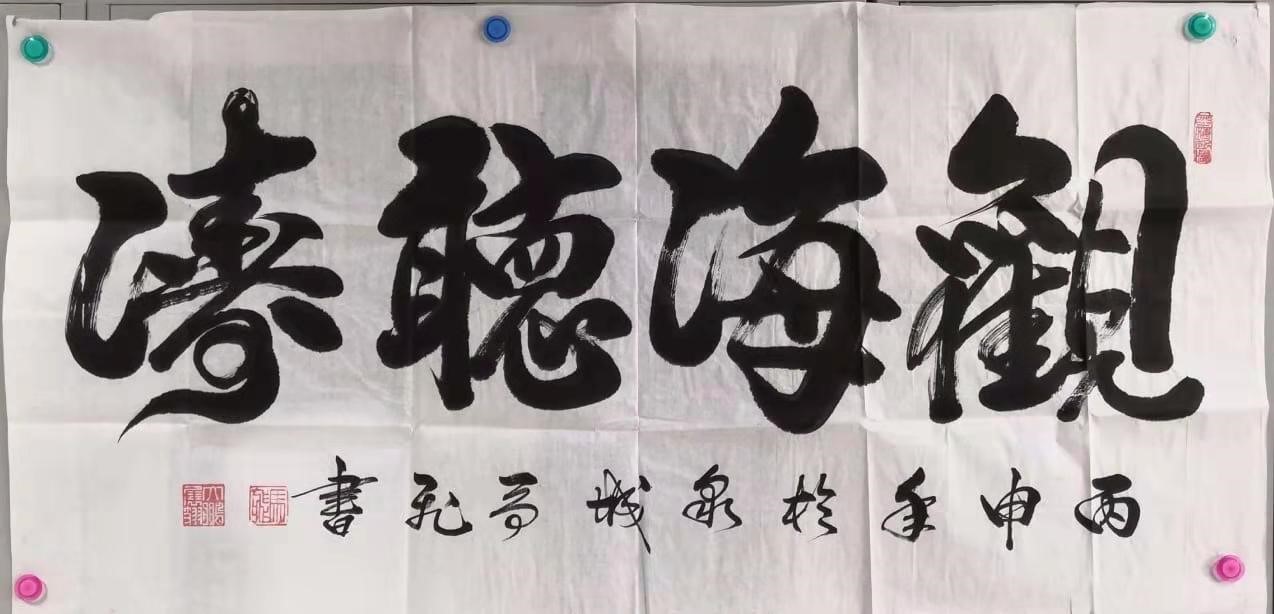 觀海聽濤
丙申年於泉城可飛書